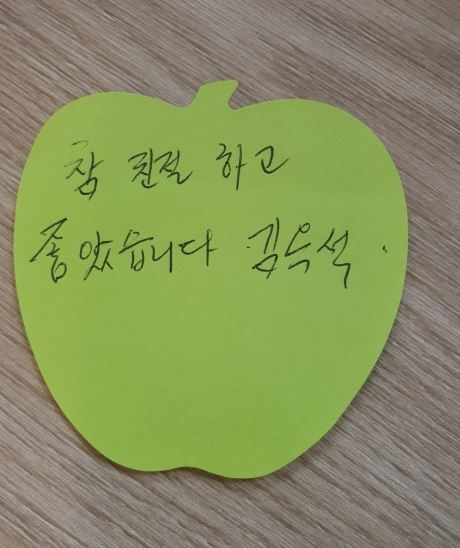 참 친절 하고
좋았습니다 김윤석.